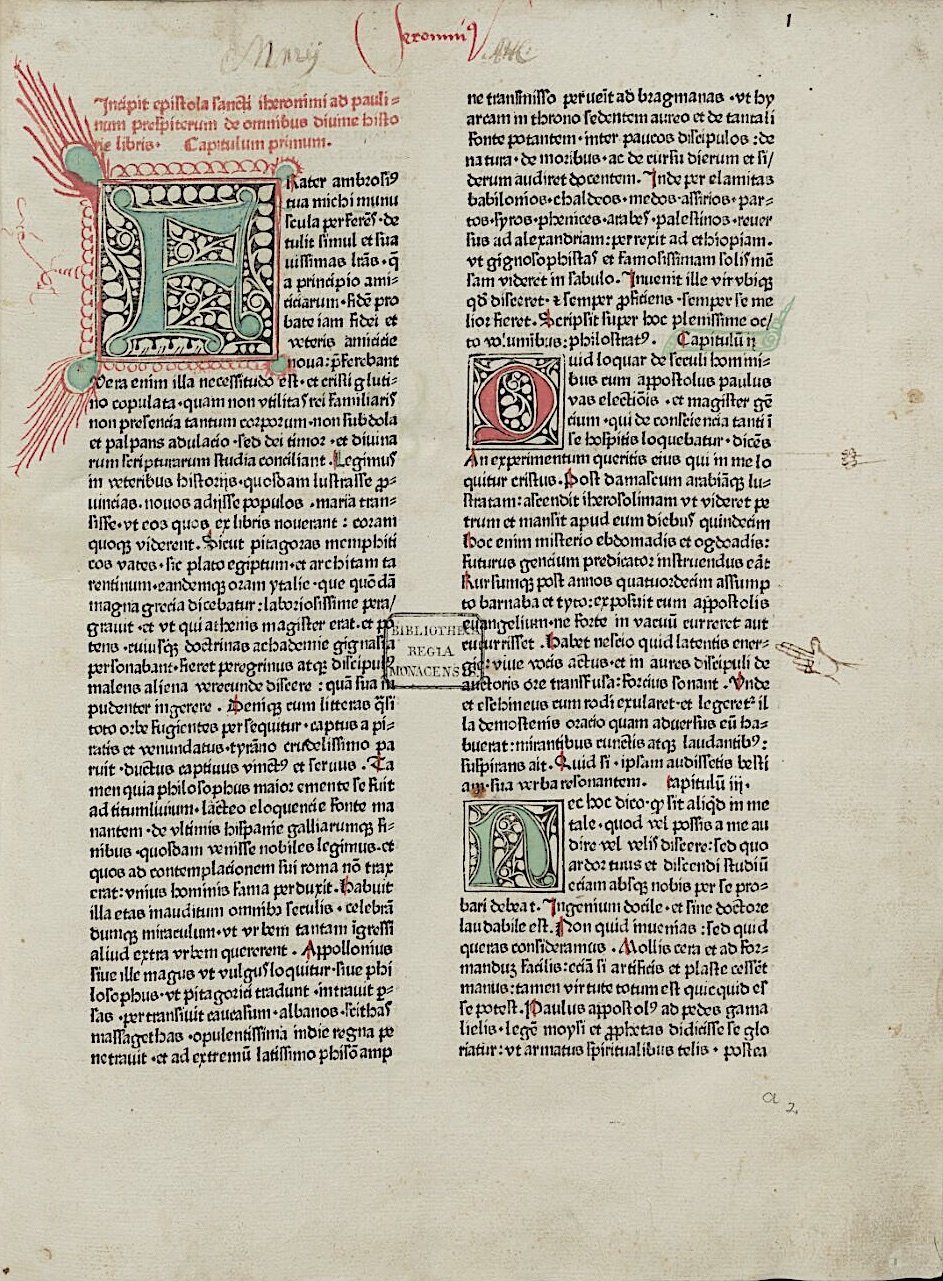 1
Jeronimus
Incipit epistola sancti iheronimi ad pauli=
num prespiterum de omnibus divine histo
rie libris. Capitulum primum.
FRater ambrosiꝰ
tua michi munu
scula perferēs·de
tulit simul et sua
uissimas lr̄as·q̄
a principio ami=
ciciarum·fidē pro
bate iam fidei et
veteris amicicie
noua:p̄ferebant
Vera enim illa necessitudo est·et cristi gluti=
no copulata·quam non vtilitas rei familiaris
non presencia tantum corporum·non subdola
et palpans adulacio·sed dei timor·et divina
rum scripturarum studia conciliant. Legimus
in veteribus historijs·quosdam lustrasse ꝓ=
uincias·nouos adijsse populos·maria tran=
sisse·vt eos quos ex libris nouerant: coram
quoqꝫ viderent. Sicut pitagoras memphiti
cos vates·sic plato egiptum·et architam ta
rentinum·eandemqꝫ oram ytalie·que quōdā
magna grecia dicebatur:laboriosissime pera/
grauit·et vt qui athenis magister erat·et po
tens·cuiusqꝫ doctrinas achademie gignasia
personabant·fieret peregrinus atqꝫ discipulꝰ
malens aliena verecunde discere: quā sua in
pudenter ingerere. Deniqꝫ cum litteras q̄si
toto orbe fugientes persequitur·captus a pi=
ratis et venundatus·tyrāno crudelissimo pa
ruit·ductus captiuus vinctꝰ et seruus. Ta
men quia philosophus maior emente se fuit
ad titumliuium·lacteo eloquencie fonte ma
nantem·de vltimis hispanie galliarumqꝫ fi=
nibus·quosdam venisse nobiles legimus·et
quos ad contemplacionem sui roma nō trax
erat:vnius hominis fama perduxit. Habuit
illa etas inauditum omnibꝰ seculis·celebrā
dumqꝫ miraculum·vt vrbem tantam īgressi
aliud extra vrbem quererent. Appollonius
siue ille magus vt vulgus loquitur·siue phi
losophus·vt pitagorici tradunt·intrauit ꝑ=
sas·pertransiuit caucasum·albanos·scithas
massagethas·opulentissima indie regna pe
netrauit·et ad extremū latissimo phisō amp
ne transmisso peruēit ad bragmanas·vt hy
arcam in throno sedentem aureo et de tantali
fonte potantem·inter paucos discipulos:de
natura·de moribus·ac de cursu dierum et si/
derum audiret docentem. Inde per elamitas
babilonios·chaldeos·medos·assirios·par=
tos·syros·phenices·arabes·palestinos·reuer
sus ad alexandriam:perrexit ad ethiopiam·
vt gignosophistas et famosissimam solis mē
sam videret in sabulo. Inuenit ille vir vbiqꝫ
qd̄ disceret·⁊ semper ꝓficiens·semper se me
lior fieret. Scripsit super hoc plenissime oc/
to volumibus:philostratꝰ. Capitulū ij
QUid loquar de seculi homini=
bus cum appostolus paulus
vas electiōis·et magister gē
cium·qui de consciencia tanti ī
se hospitis loquebatur·dicēs
An experimentum queritis eius qui in me lo
quitur cristus. Post damascum arabiāqꝫ lu=
stratam:ascendit iherosolimam vt videret pe
trum et mansit apud eum diebus quindecim
Hoc enim misterio ebdomadis et ogdoadis:
futurus gencium predicator instruendus eāt
Rursumqꝫ post annos quatuordecim assump
to barnaba et tyto:exposuit cum appostolis
euangelium·ne forte in vacuū curreret aut
cucurrisset. Habet nescio quid latentis ener=
gie:viue vocis actus·et in aures discipuli de
auctoris ore transfusa:forcius sonant. Vnde
et eschineus cum rodi exularet·et legeretᵉ il
la demostenis oracio quam aduersus eū ha=
buerat:mirantibus cunctis atqꝫ laudantibꝰ:
suspirans ait. Quid si·ipsam audissetis besti
am·sua verba resonantem. capitulū iij·
NEc hoc dico·ꝙ sit aliqd̄ in me
tale·quod vel possis a me au
dire vel velis discere:sed quo
ardor tuus et discendi studiū
eciam absqꝫ nobis per se pro=
bari debeat. Ingenium docile·et sine doctore
laudabile est. Non quid inuenias:sed quid
queras consideramus. Mollis cera et ad for=
manduꝫ facilis:eciā si artificis et plaste cessēt
manus:tamen virtute totum est quicquid es
se potest. Paulus appostolꝰ ad pedes gama
lielis·legē moysi et ꝓphetas didicisse se glo
riatur:vt armatus spiritualibus telis·postea
BIBLIOTHECA
REGIA
MONACENSIS
a 2